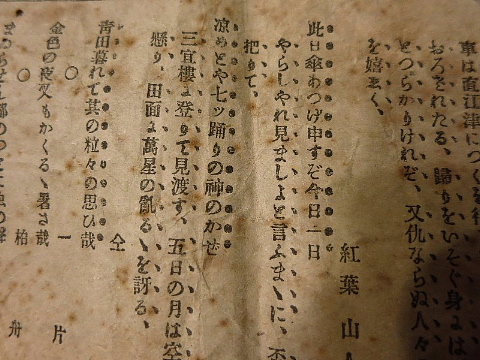 車は直江津につくを待
おろされたる、歸りをいそぐ身には
とつらかりけれど、又仇ならぬ人々
を嬉しく、
紅葉山人
此日傘あづけ申すぞ今日一日
やらしやれ見ましよと言ふまゝに、盃
把りて、
凉めとや七ッ踊りの神のかぜ
三宜樓に登りて見渡す、五日の月は空
懸り、田面に萬星の亂るゝを訝る、
仝
青田暮れて其の粒々の思ひ哉
一片
金色の夜叉もかくるゝ暑さ哉
柏舟